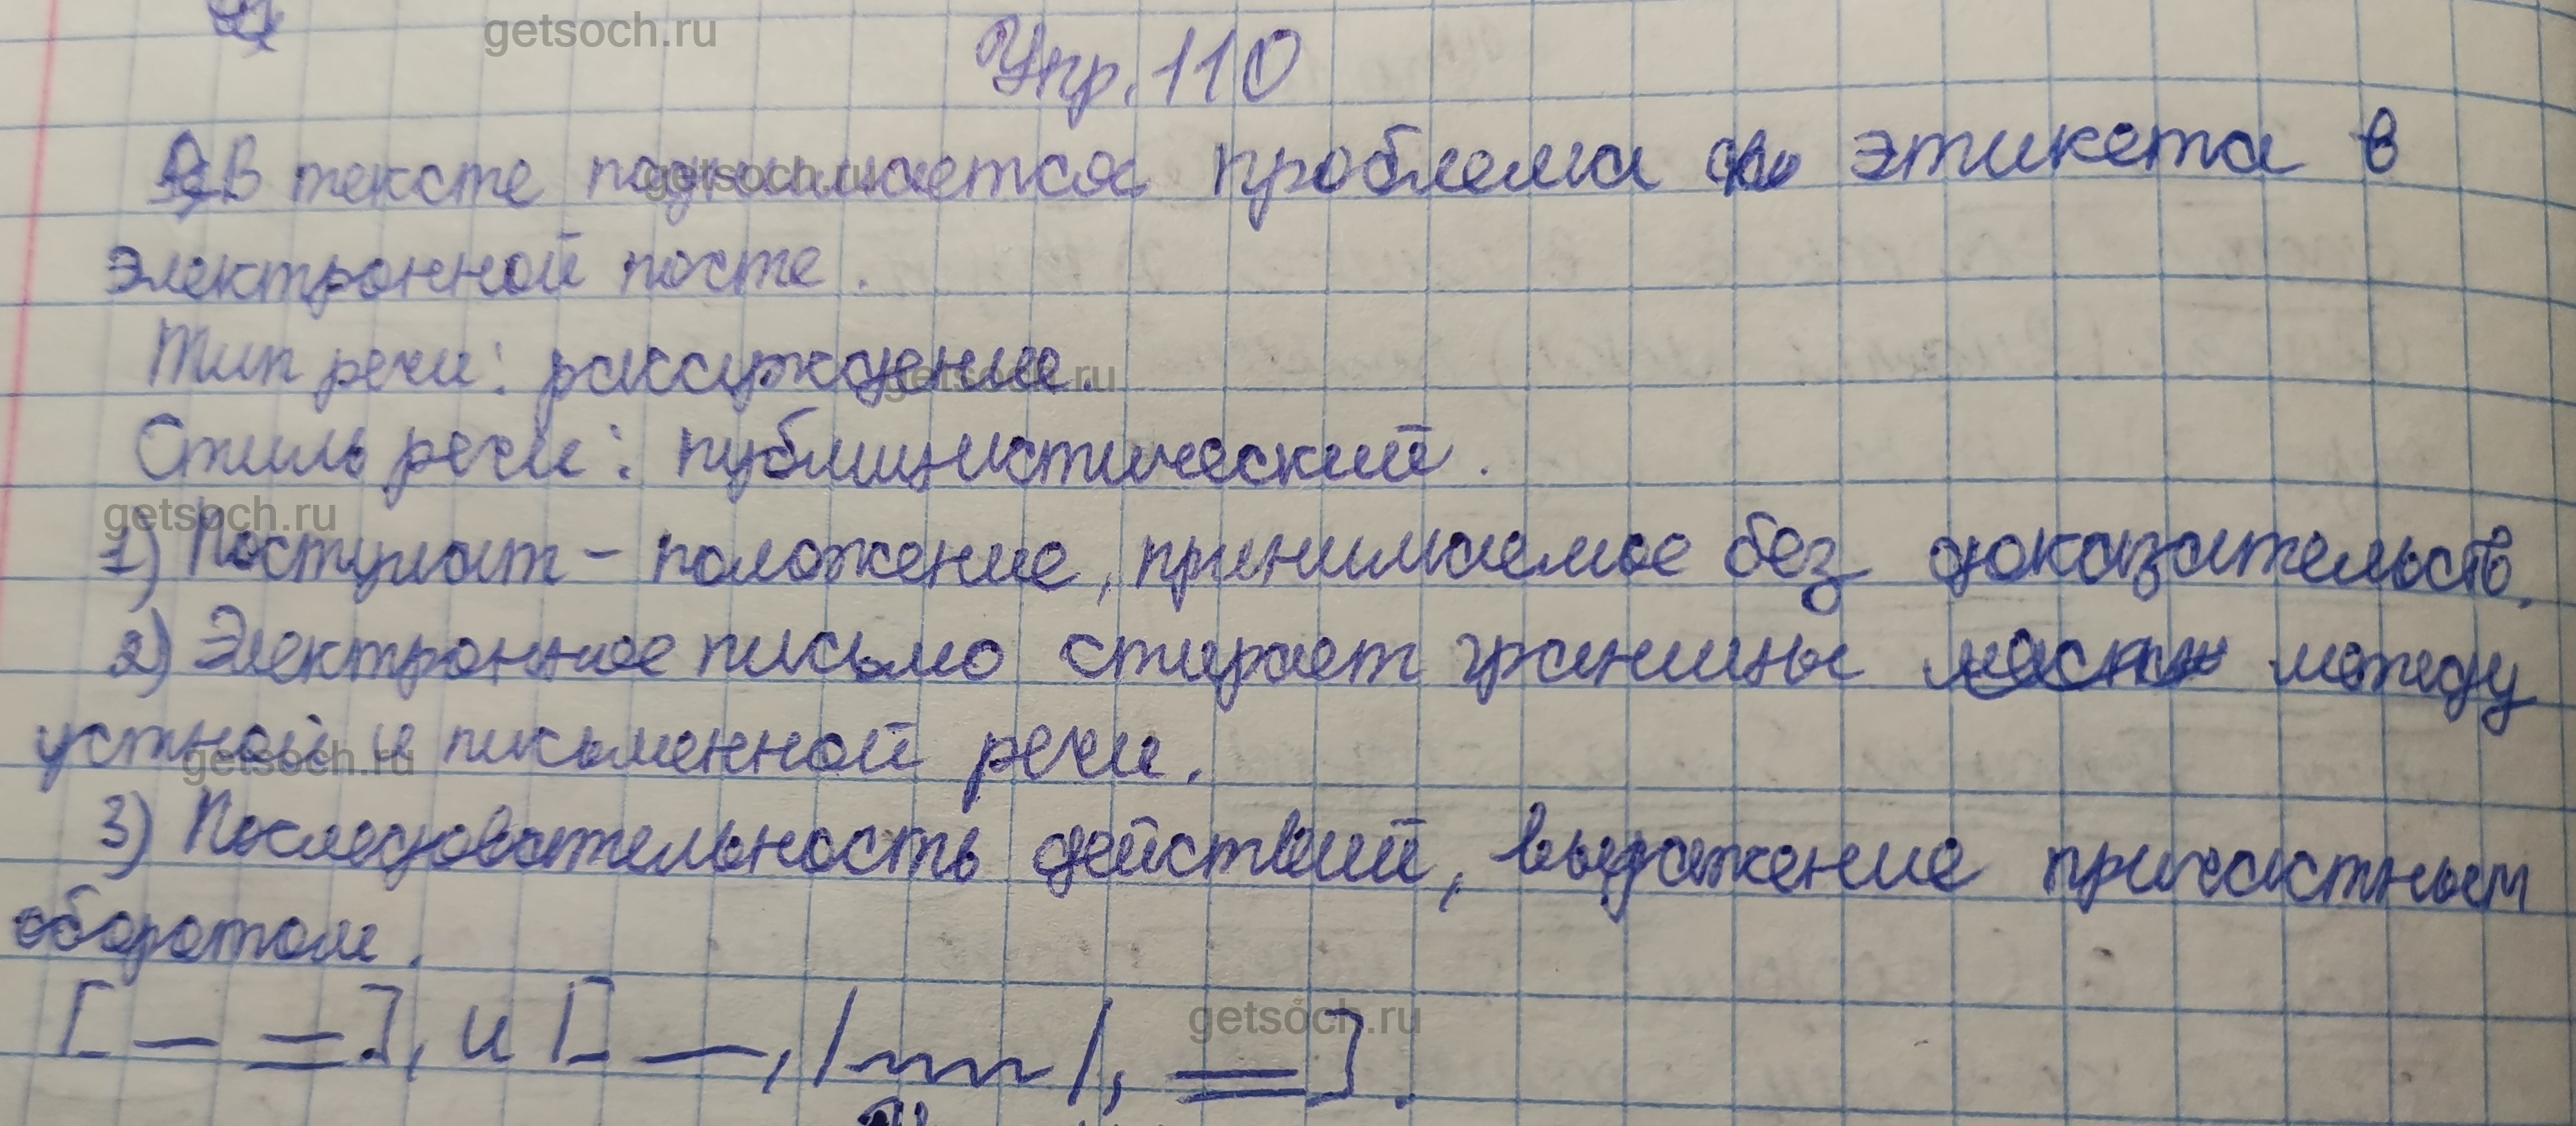 getsoch.ru
Упр. 110
В тексте поднимается проблема этикета в
электронной посте.
Тип речи: рассуждение.
Стиль речи: публицистический.
1) Постулат - положение, принимаемое без доказательств.
2) Электронное письмо стирает границы между
устной и письменной речи.
3) Последовательность действий, выражение причастным
оборотом.
[— =], и [—, |~~~|, =].
getsoch.ru
getsoch.ru
getsoch.ru
getsoch.ru
getsoch.ru